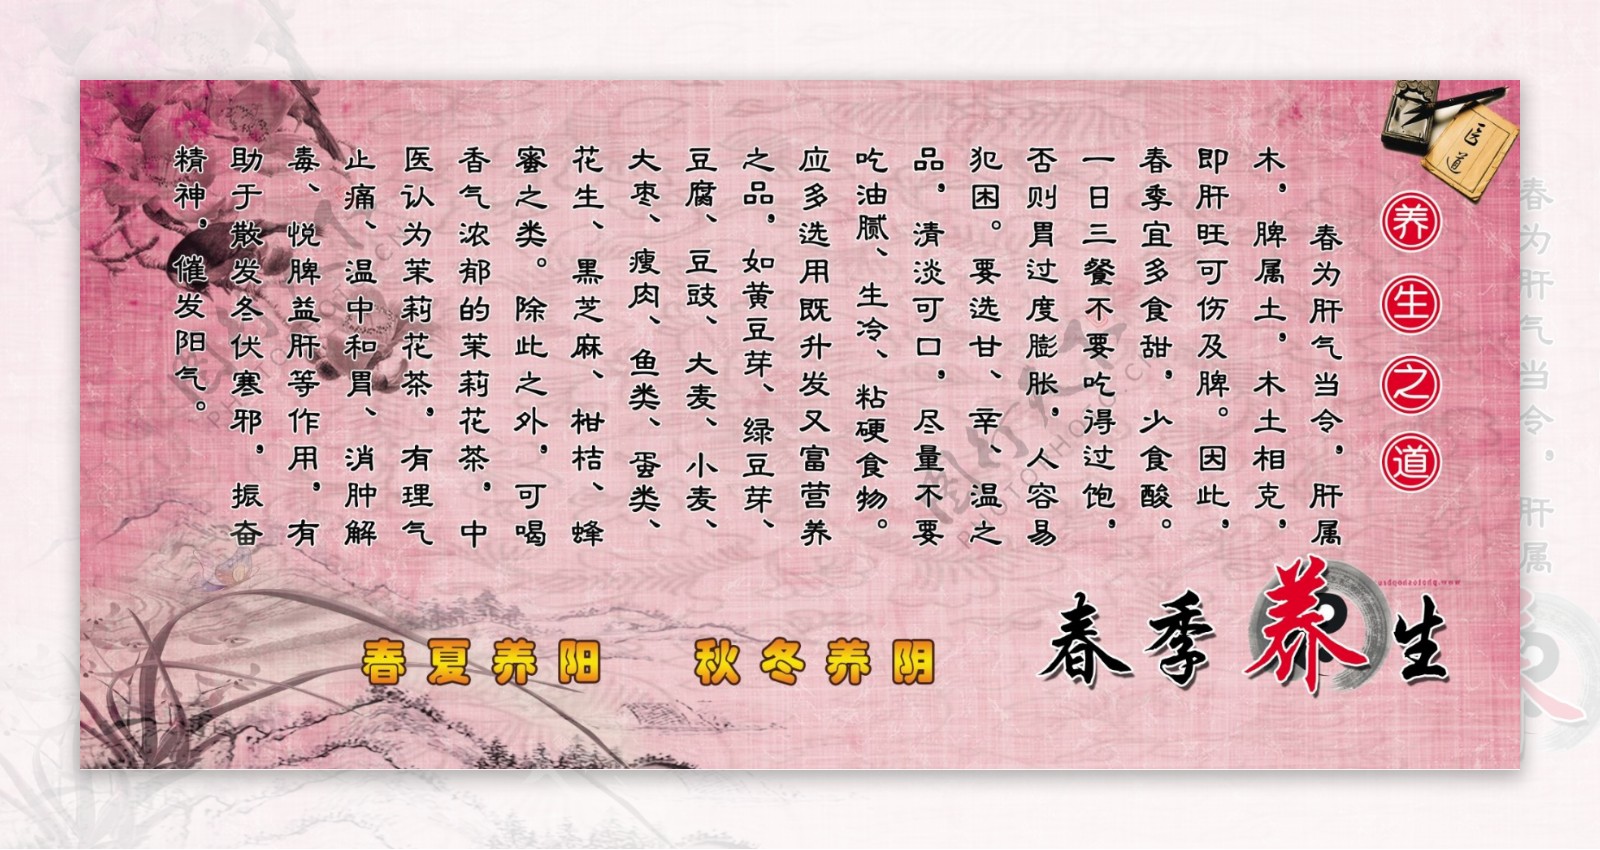 医道
养生之道
春为肝气当令，肝属
木，脾属土，木土相克，
即肝旺可伤及脾。因此，
春季宜多食甜，少食酸。
一日三餐不要吃得过饱，
否则胃过度膨胀，人容易
犯困。要选甘、辛、温之
品，清淡可口，尽量不要
吃油腻、生冷、粘硬食物。
应多选用既升发又富营养
之品，如黄豆芽、绿豆芽、
豆腐、豆豉、大麦、小麦、
大枣、瘦肉、鱼类、蛋类、
花生、黑芝麻、柑桔、蜂
蜜之类。除此之外，可喝
香气浓郁的茉莉花茶，中
医认为茉莉花茶，有理气
止痛、温中和胃、消肿解
毒、悦脾益肝等作用，有
助于散发冬伏寒邪，振奋
精神，催发阳气。
春季养生
春夏养阳　秋冬养阴